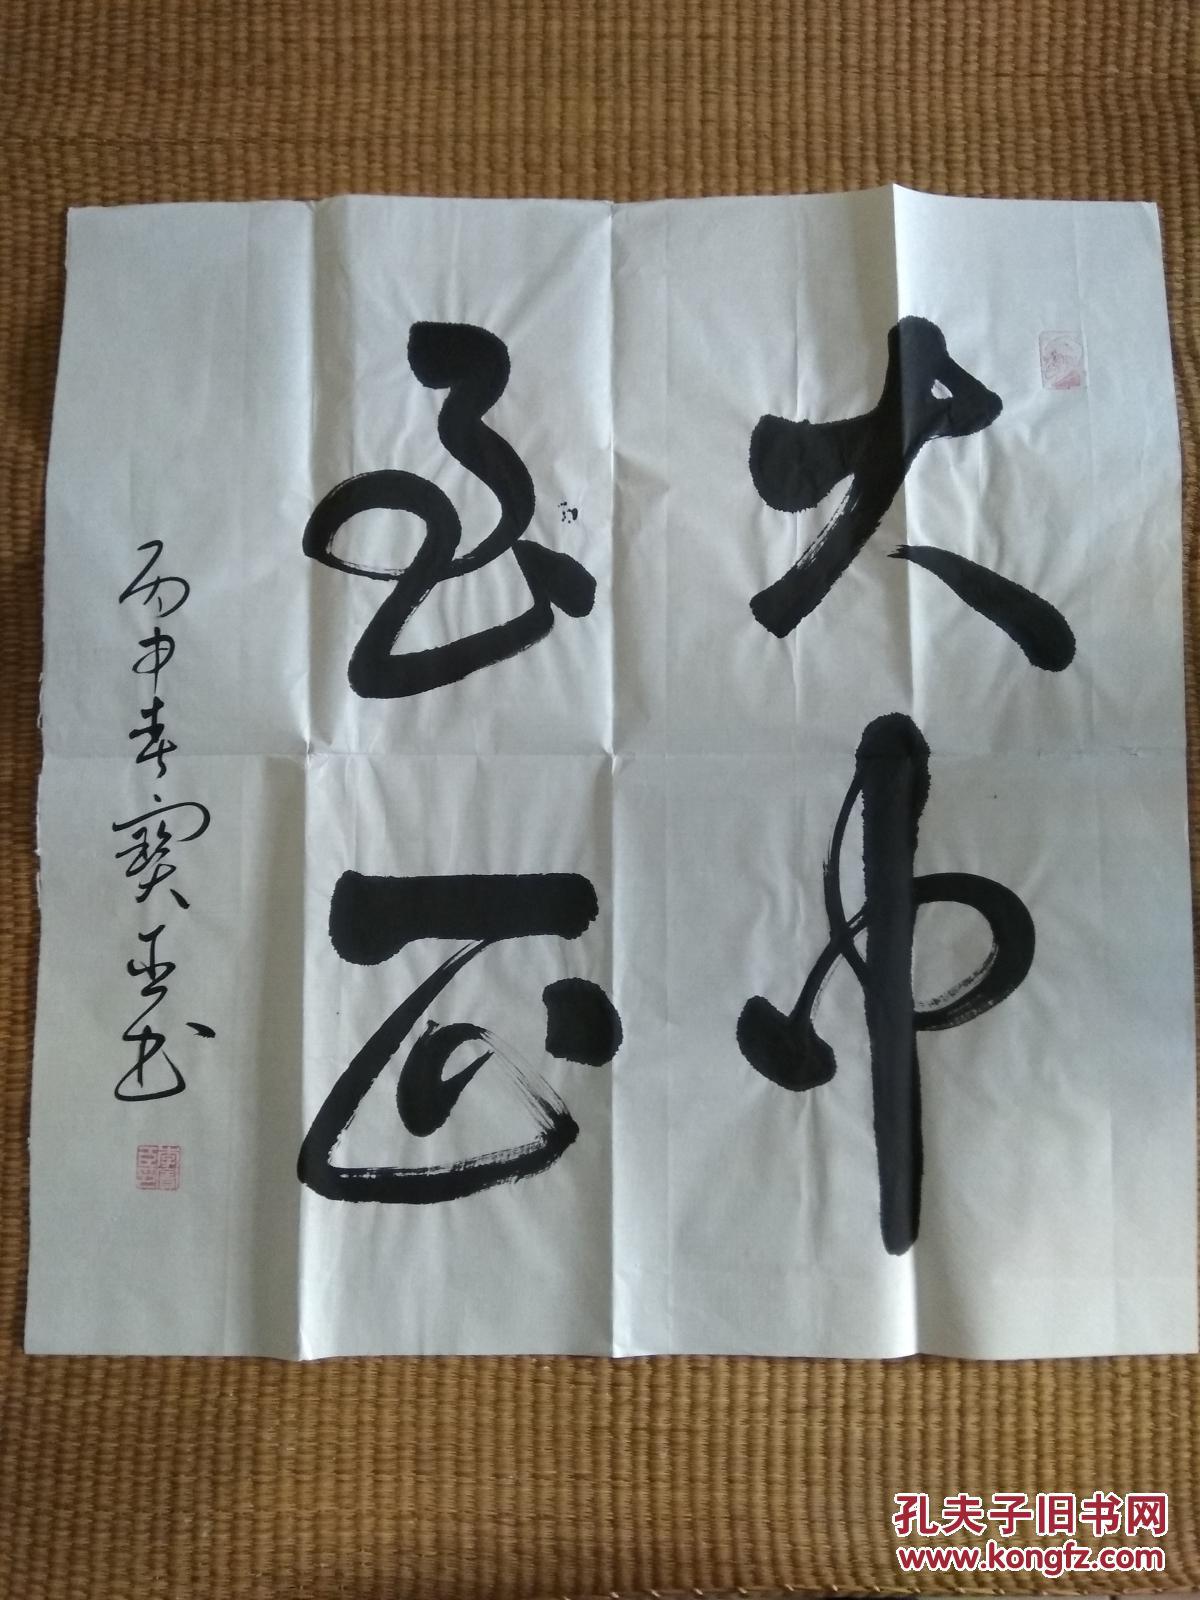 大中
至正
丙申春寶书
孔夫子旧书网
www.kongfz.com